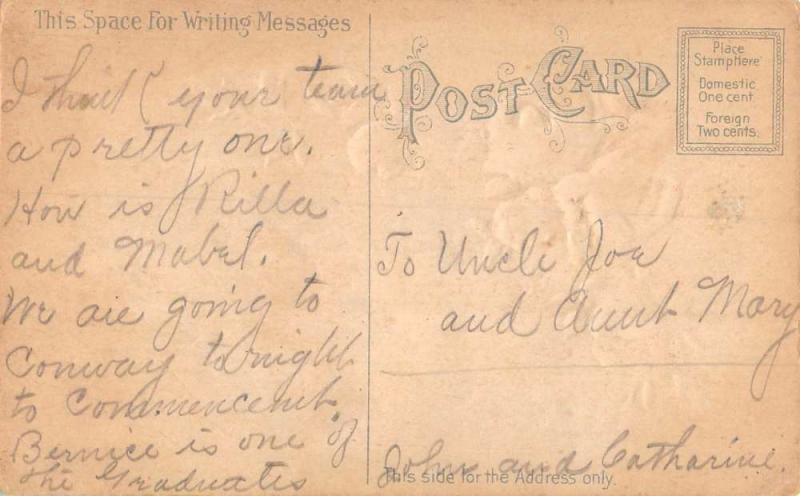 This Space For Writing Messages
I think your team
a pretty one.
How is Rilla
and Mabel.
We are going to
Conway to night
to Commencement.
Bernice is one of
the Graduates
POST CARD
Place
Stamp Here
Domestic
One cent
Foreign
Two cents.
To Uncle Joe
and Aunt Mary
John and Catharine.
This side for the Address only.